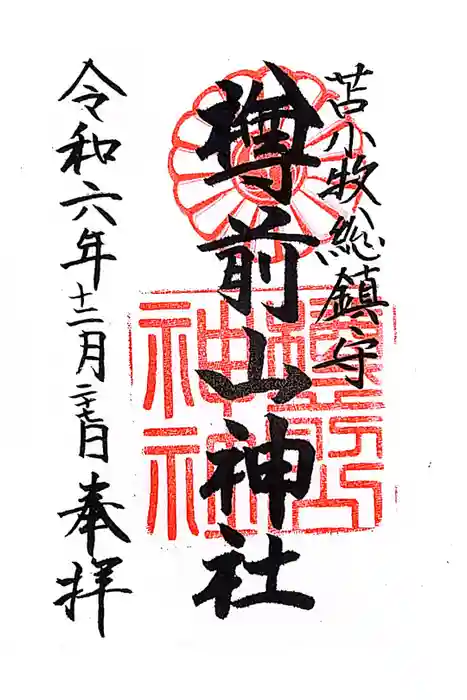 苫小牧総鎮守
樽前山神社
令和六年十二月二十七日 奉拝
樽前山
神社